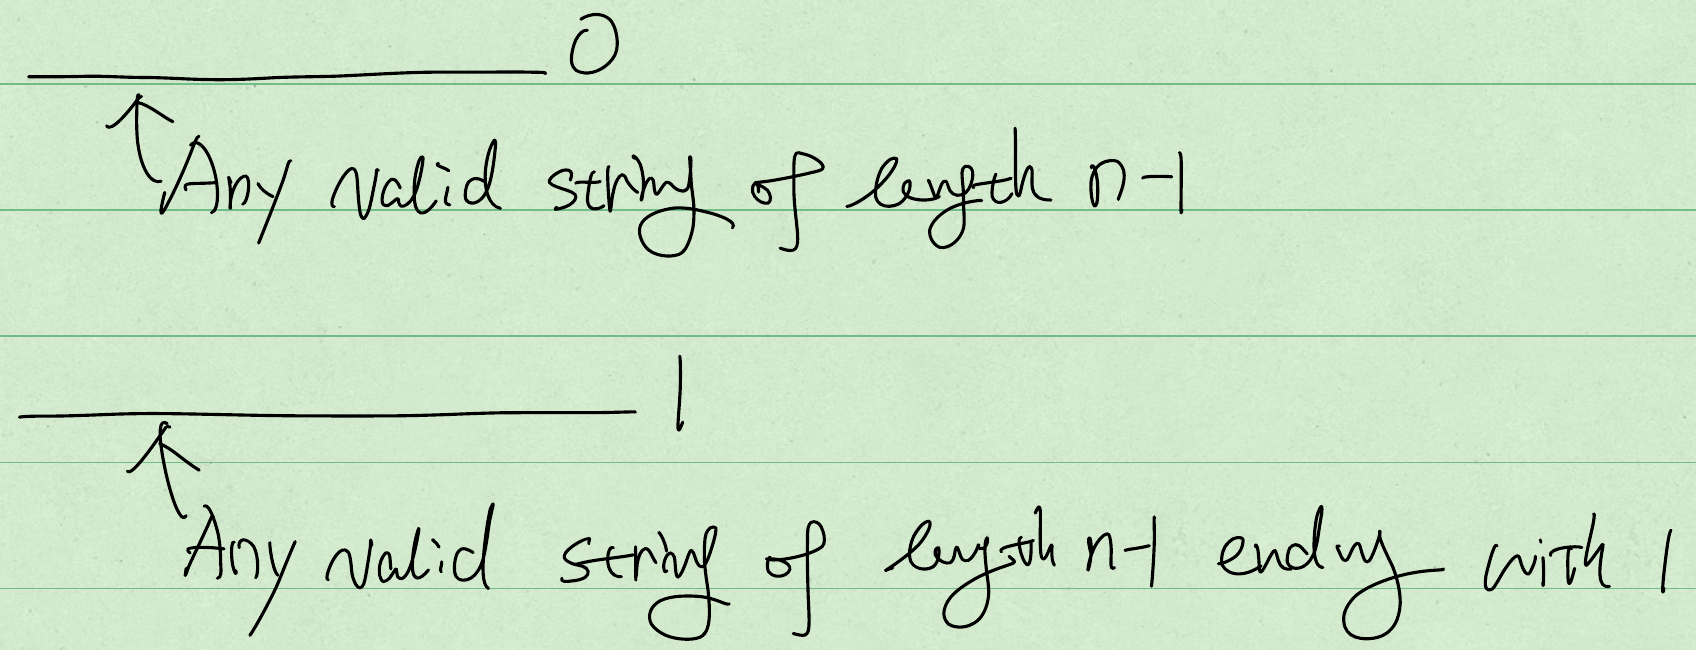 0
Any valid string of length n-1
1
Any valid string of length n-1 ending with 1